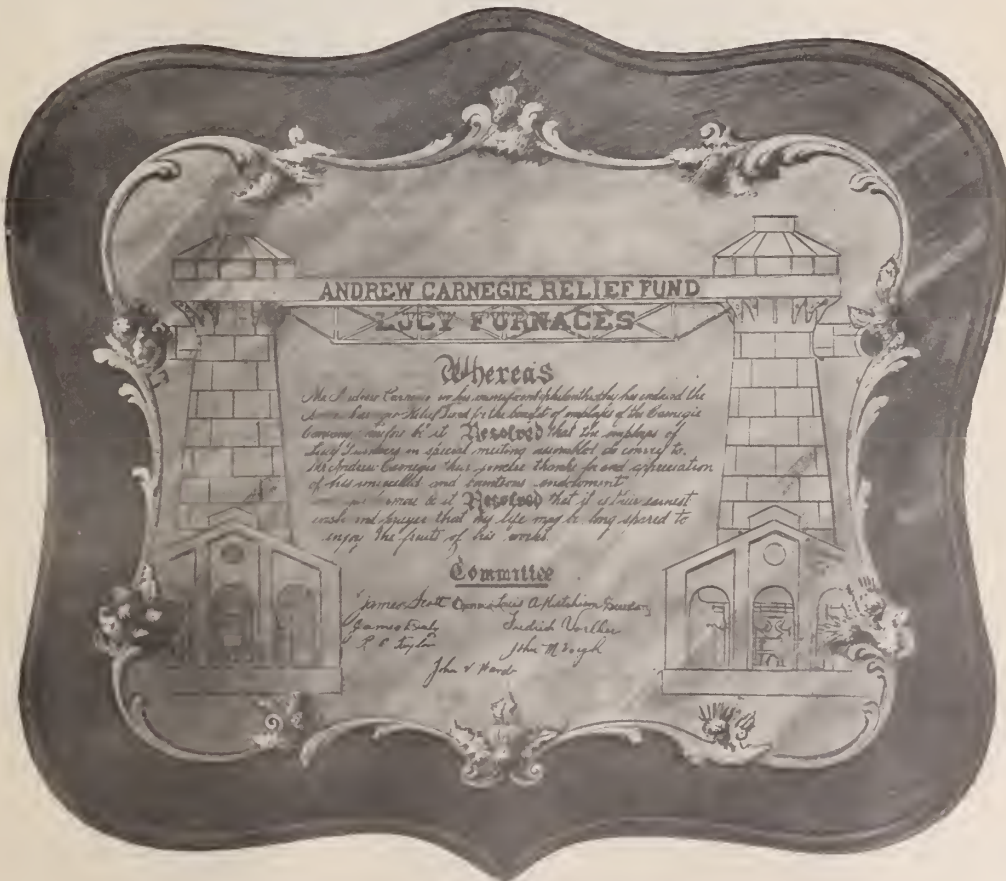 ANDREW CARNEGIE RELIEF FUND
LUCY FURNACES
Whereas
Mr Andrew Carnegie in his munificent philanthropy has endowed the
Andrew Carnegie Relief Fund for the benefit of employes of the Carnegie
Company be it Resolved that the employes of
Lucy Furnaces in special meeting assembled do convey to
Mr Andrew Carnegie their sincere thanks for and appreciation
of his unexcelled and bounteous endowment
be it Resolved that it is their earnest
wish and prayer that his life may be long spared to
enjoy the fruits of his works.
Committee
James Scott Louis A Hutchison
James
R C Taylor
John
John Ward